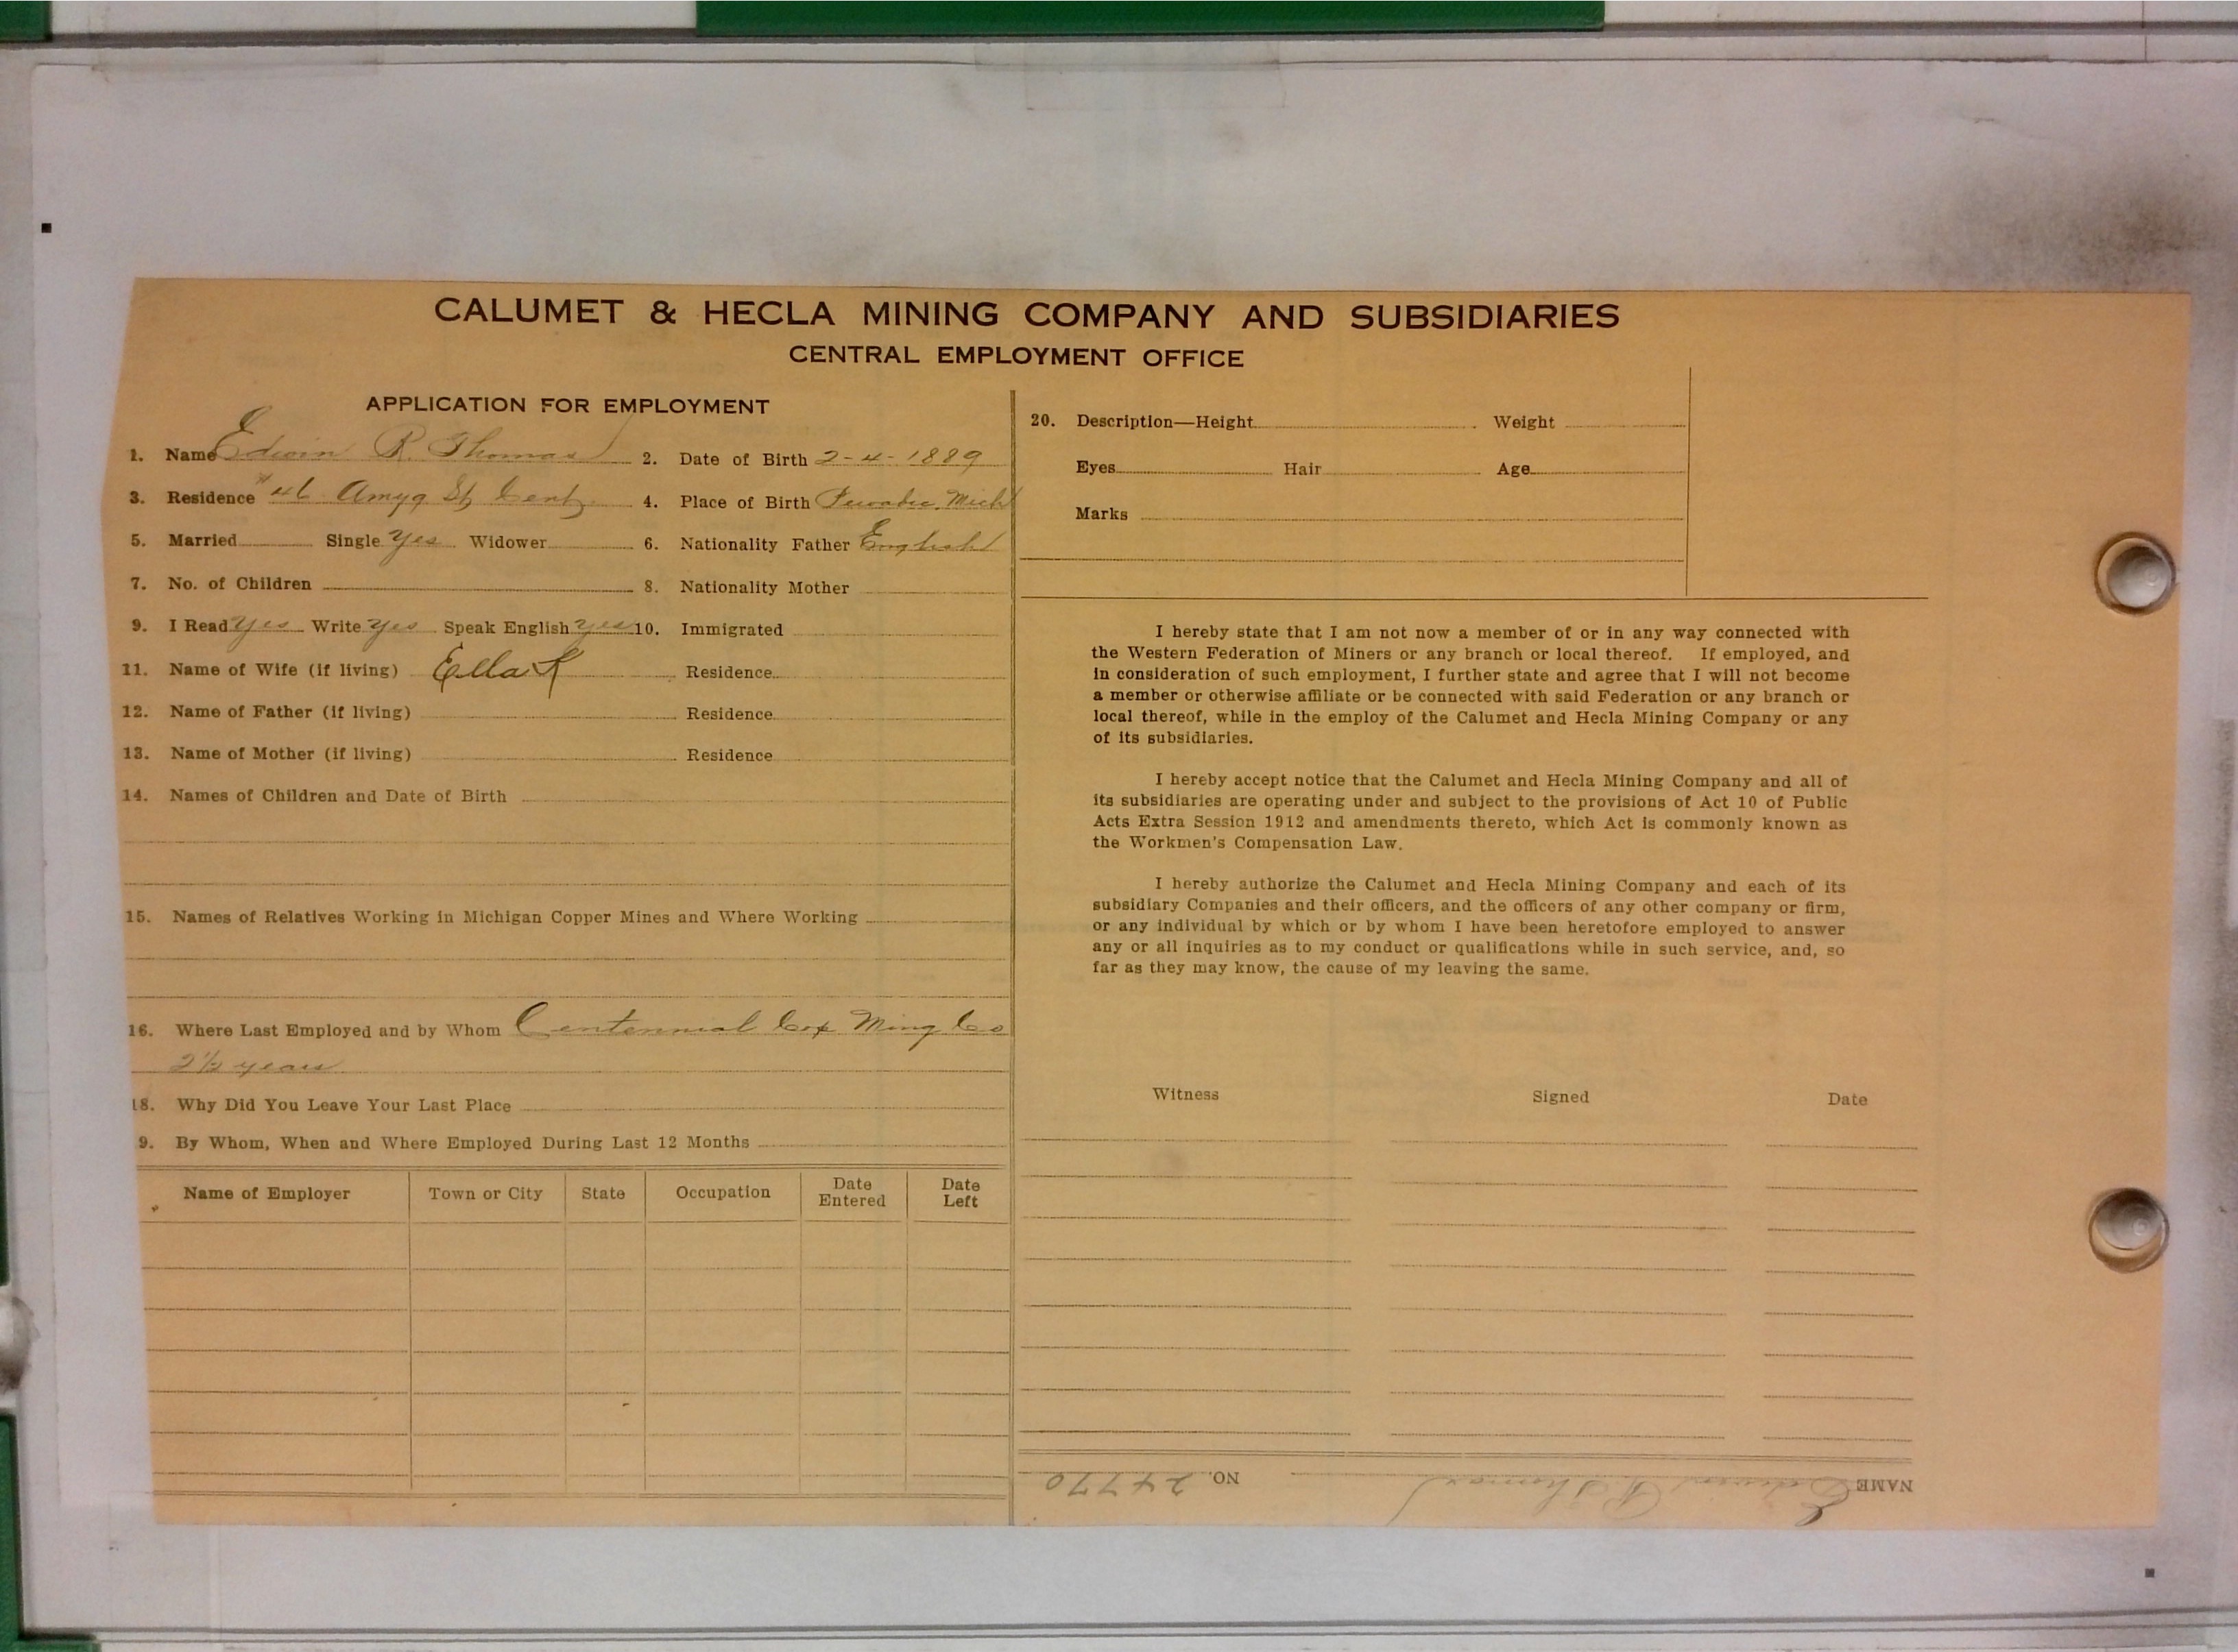 CALUMET & HECLA MINING COMPANY AND SUBSIDIARIES
CENTRAL EMPLOYMENT OFFICE
APPLICATION FOR EMPLOYMENT
1. Name Edwin R. Thomas 2. Date of Birth 2-4-1889
3. Residence #46 Amyg St Cent 4. Place of Birth Pewabic Mich
5. Married Single Yes Widower 6. Nationality Father English
7. No. of Children 8. Nationality Mother
9. I Read Yes Write Yes Speak English Yes 10. Immigrated
11. Name of Wife (if living) Ella K Residence
12. Name of Father (if living) Residence
13. Name of Mother (if living) Residence
14. Names of Children and Date of Birth
15. Names of Relatives Working in Michigan Copper Mines and Where Working
16. Where Last Employed and by Whom Centennial Cop Ming Co
2½ years
18. Why Did You Leave Your Last Place
9. By Whom, When and Where Employed During Last 12 Months
Name of Employer Town or City State Occupation Date Entered Date Left
20. Description—Height Weight
Eyes Hair Age
Marks
I hereby state that I am not now a member of or in any way connected with
the Western Federation of Miners or any branch or local thereof. If employed, and
in consideration of such employment, I further state and agree that I will not become
a member or otherwise affiliate or be connected with said Federation or any branch or
local thereof, while in the employ of the Calumet and Hecla Mining Company or any
of its subsidiaries.
I hereby accept notice that the Calumet and Hecla Mining Company and all of
its subsidiaries are operating under and subject to the provisions of Act 10 of Public
Acts Extra Session 1912 and amendments thereto, which Act is commonly known as
the Workmen's Compensation Law.
I hereby authorize the Calumet and Hecla Mining Company and each of its
subsidiary Companies and their officers, and the officers of any other company or firm,
or any individual by which or by whom I have been heretofore employed to answer
any or all inquiries as to my conduct or qualifications while in such service, and, so
far as they may know, the cause of my leaving the same.
Witness Signed Date
NAME Edwin R. Thomas NO. 24770